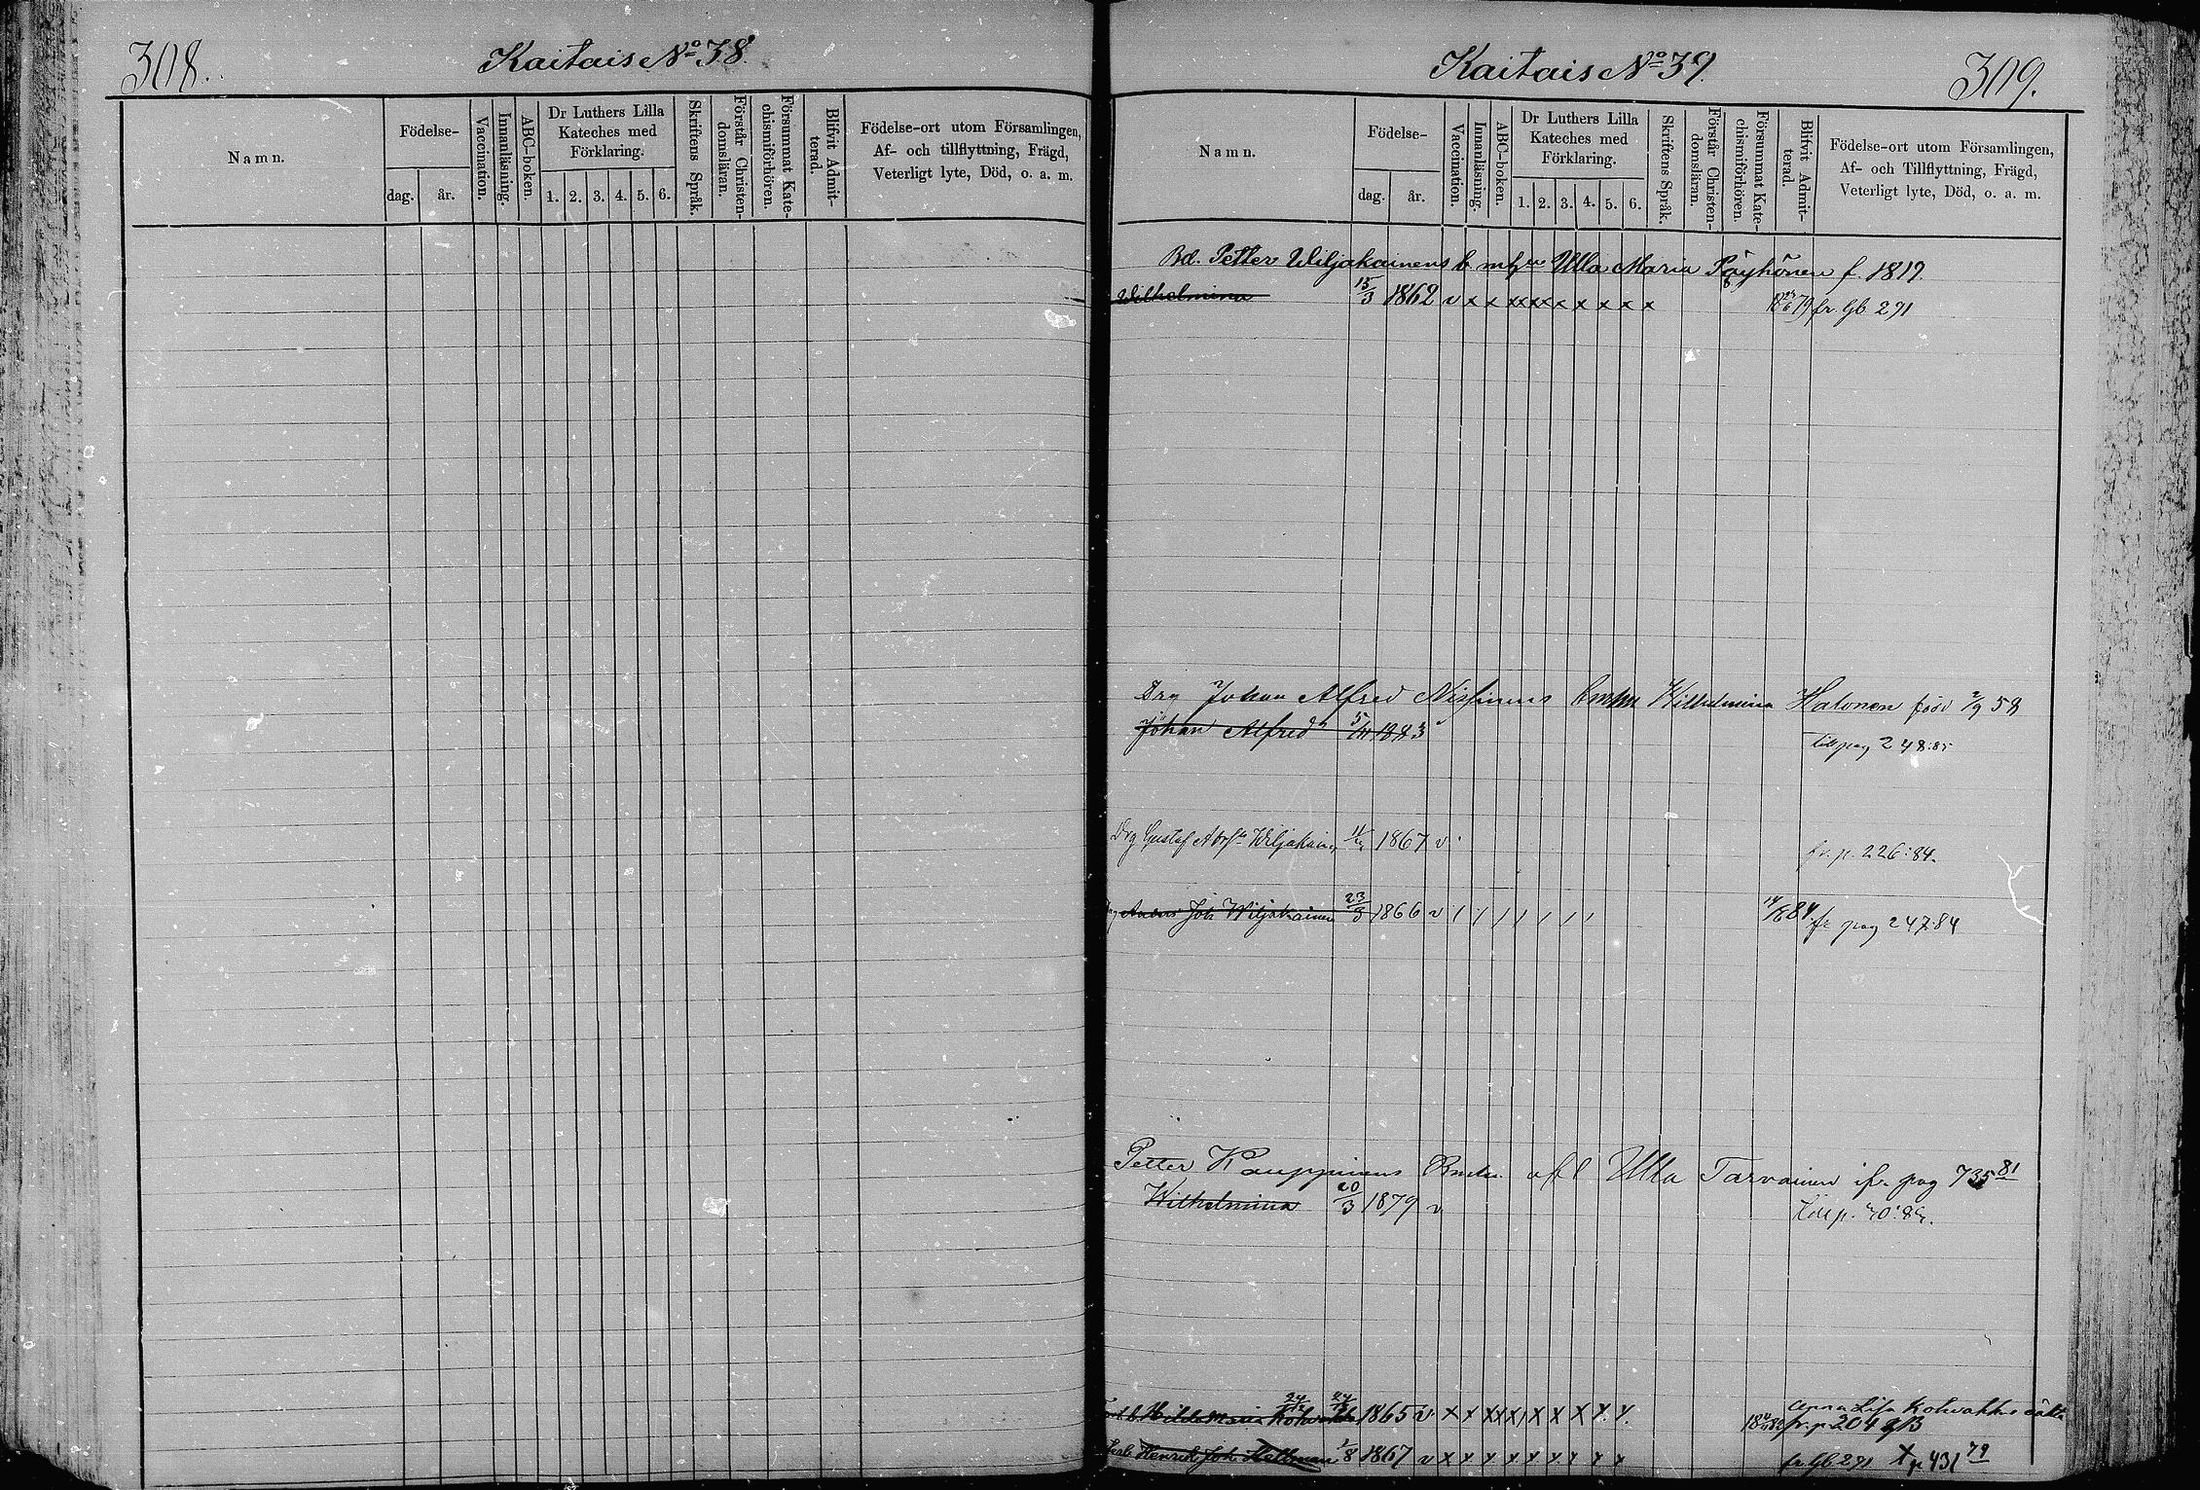 308.
Kaitais No 38.
Namn.
Födelse-
dag.
år.
Vaccination.
Innanläsning.
ABC-boken.
Dr Luthers Lilla
Kateches med
Förklaring.
1. 2. 3. 4. 5. 6.
Skriftens Språk.
Förstår Christen-
domsläran.
Försummat Kate-
chismiförhören.
Blifvit Admit-
terad.
Födelse-ort utom Församlingen,
Af- och tillflyttning, Frägd,
Veterligt lyte, Död, o. a. m.
Kaitais No 39.
309.
Namn.
Födelse-
dag.
år.
Vaccination.
Innanläsning.
ABC-boken.
Dr Luthers Lilla
Kateches med
Förklaring.
1. 2. 3. 4. 5. 6.
Skriftens Språk.
Förstår Christen-
domsläran.
Försummat Kate-
chismiförhören.
Blifvit Admit-
terad.
Födelse-ort utom Församlingen,
Af- och Tillflyttning, Frägd,
Veterligt lyte, Död, o. a. m.
Bd. Petter Wiljakainens b m hu Ulla Maria Pöyhönen f. 1819.
Wilhelmina 13/3 1862 v x x x x x x x x x x x fr. Gb 291
Drg Johan Alfred Nissinens Wilhelmina Halonen född 2/9 58
Johan Alfred 5/11 1883 till pag 248:85
Drg Gustaf Wiljakain 1867 v fr. p. 226:84
Anders Joh Wiljakainen 23/3 1866 v / / / / / / / / 84 fr pag 247:84
Petter Kauppinens Ulla Tarvainen fr pag 735 81
Wilhelmina 20/3 1879 v till p.
Hilda Maria Kohvakka 1865 v x x x x x x x x x x fr. p 204
Henrik Joh Hellman 1/8 1867 v x x x x x x x x x fr Gb 291 x p 431 79